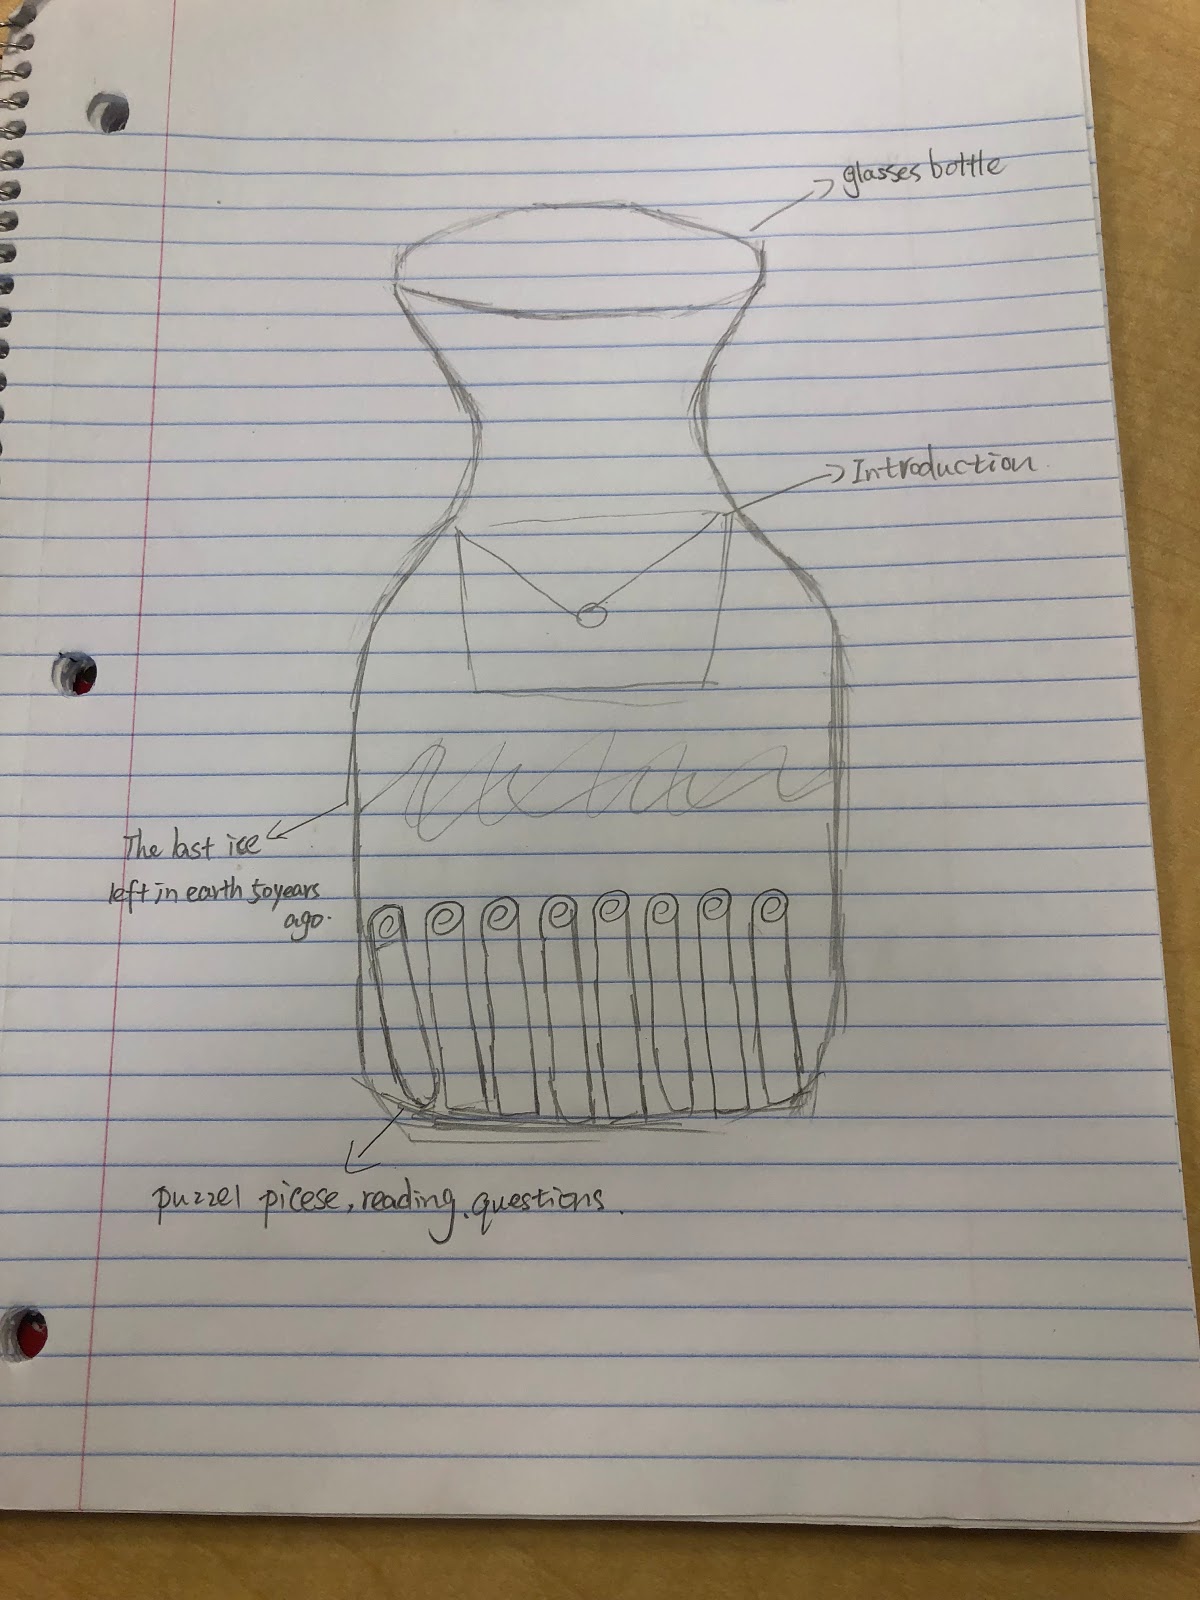 glasses bottle
Introduction.
The last ice
left in earth 50years
ago.
puzzel picese, reading, questions.